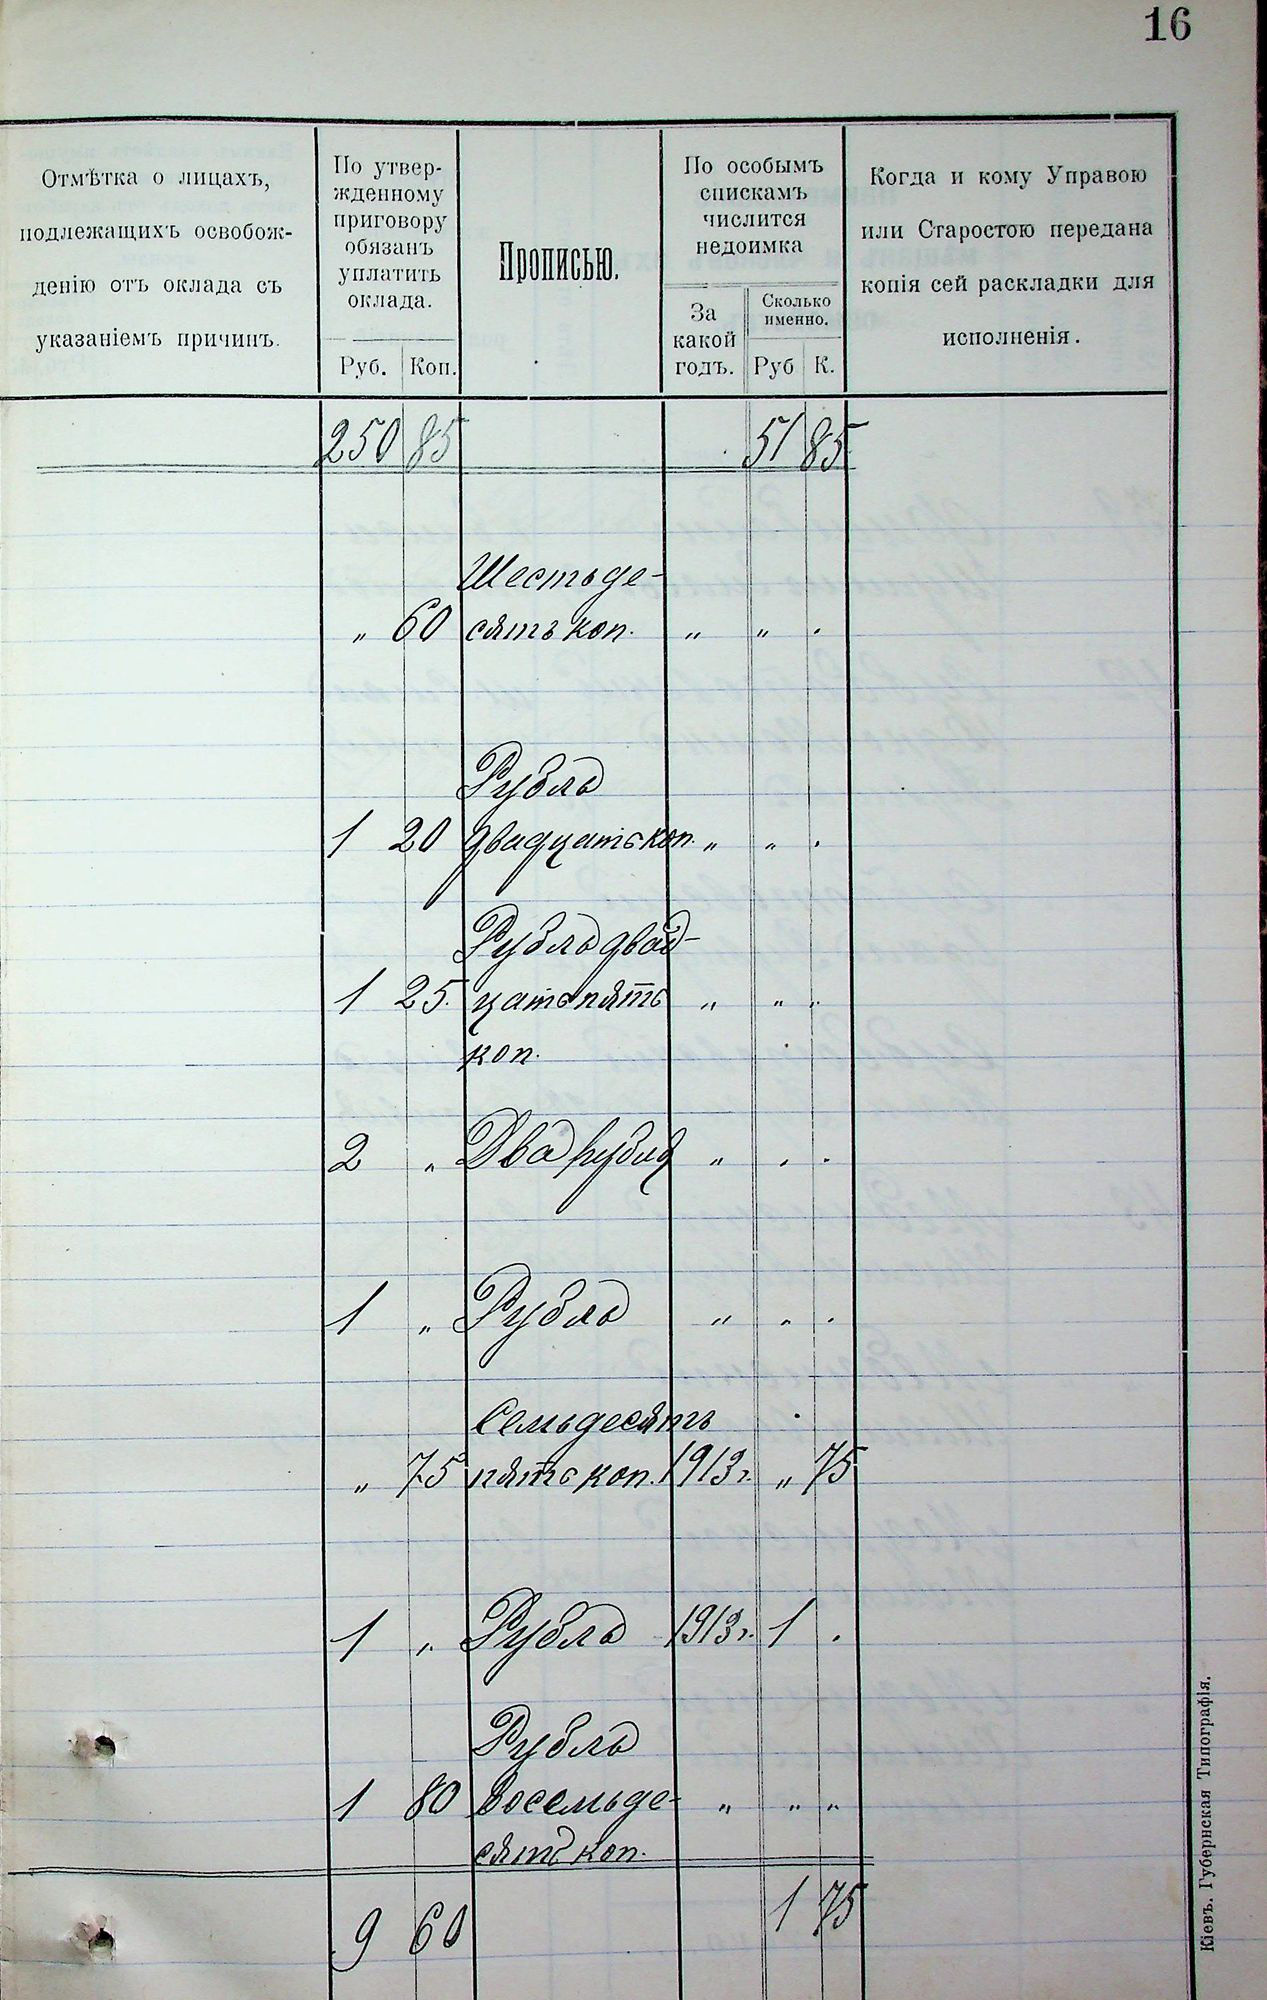 16
Отмѣтка о лицахъ,
подлежащихъ освобож-
денію отъ оклада съ
указаніемъ причинъ.
По утвер-
жденному
приговору
обязанъ
уплатить
оклада.
Руб. Коп.
Прописью.
По особымъ
спискамъ
числится
недоимка
За
какой
годъ.
Сколько
именно.
Руб К.
Когда и кому Управою
или Старостою передана
копія сей раскладки для
исполненія.
250 85 51 85
Шестьде-
„ 60 сять коп. „ „ .
Рубль
1 20 двадцать коп. „ „ .
Рубль двад-
1 25. цать пять „ „ „
коп.
2 „ Два рубля „ . .
1 „ Рубль „ . .
Семьдесять
„ 75 пять коп. 1913 г. „ 75
1 „ Рубль 1913 г. 1 .
Рубль
1 80 восемьде- „ „ „
сять коп.
9 60 1 75
Кіевъ. Губернская Типографія.